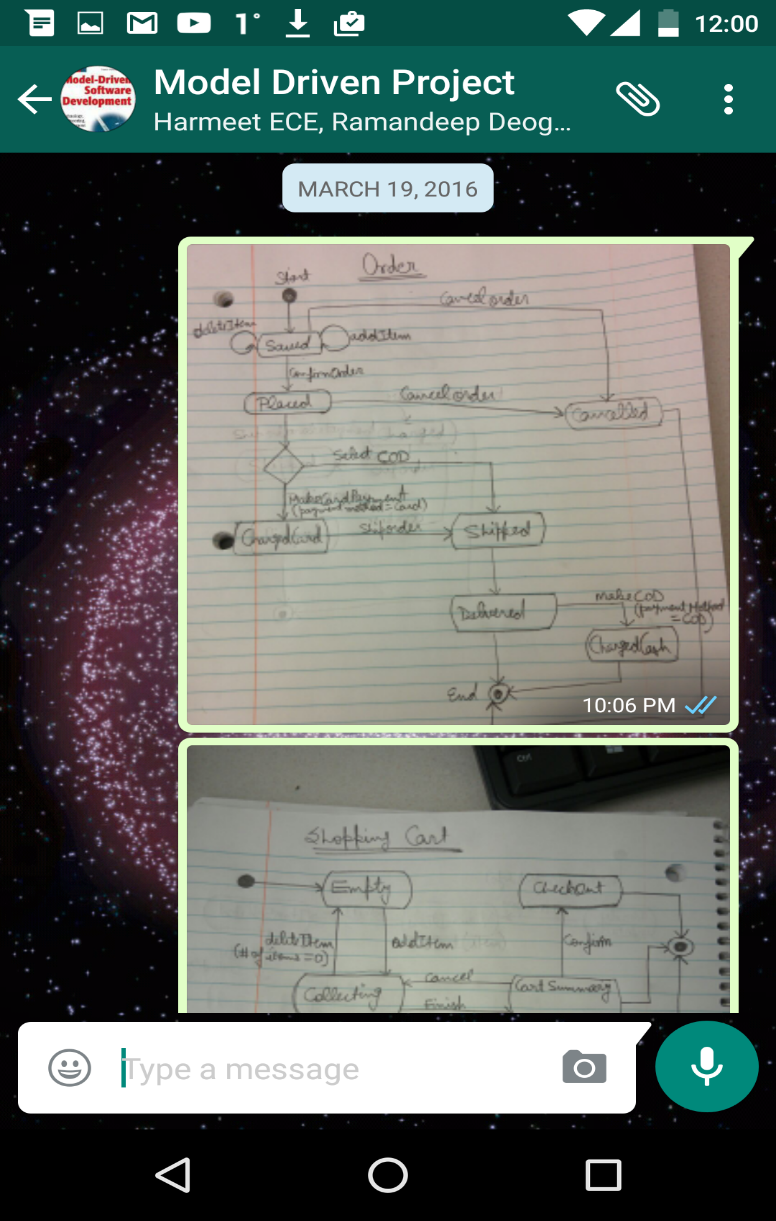 12:00
1°
Model-Driven
Software
Development
Model Driven Project
Harmeet ECE, Ramandeep Deog...
MARCH 19, 2016
Order
Start
Cancel order
deleteItem
Saved
addItem
ConfirmOrder
Placed
Cancel order
Cancelled
Select COD
MakeCardPayment
(payment method = card)
ChargedCard
Shiporder
Shipped
Delivered
makeCOD
(payment Method
= COD)
ChargedCash
End
10:06 PM
Ctrl
Shopping Cart
Empty
CheckOut
deleteItem
(# of items = 0)
addItem
Confirm
Collecting
Cancel
Cart Summary
Finish
Type a message